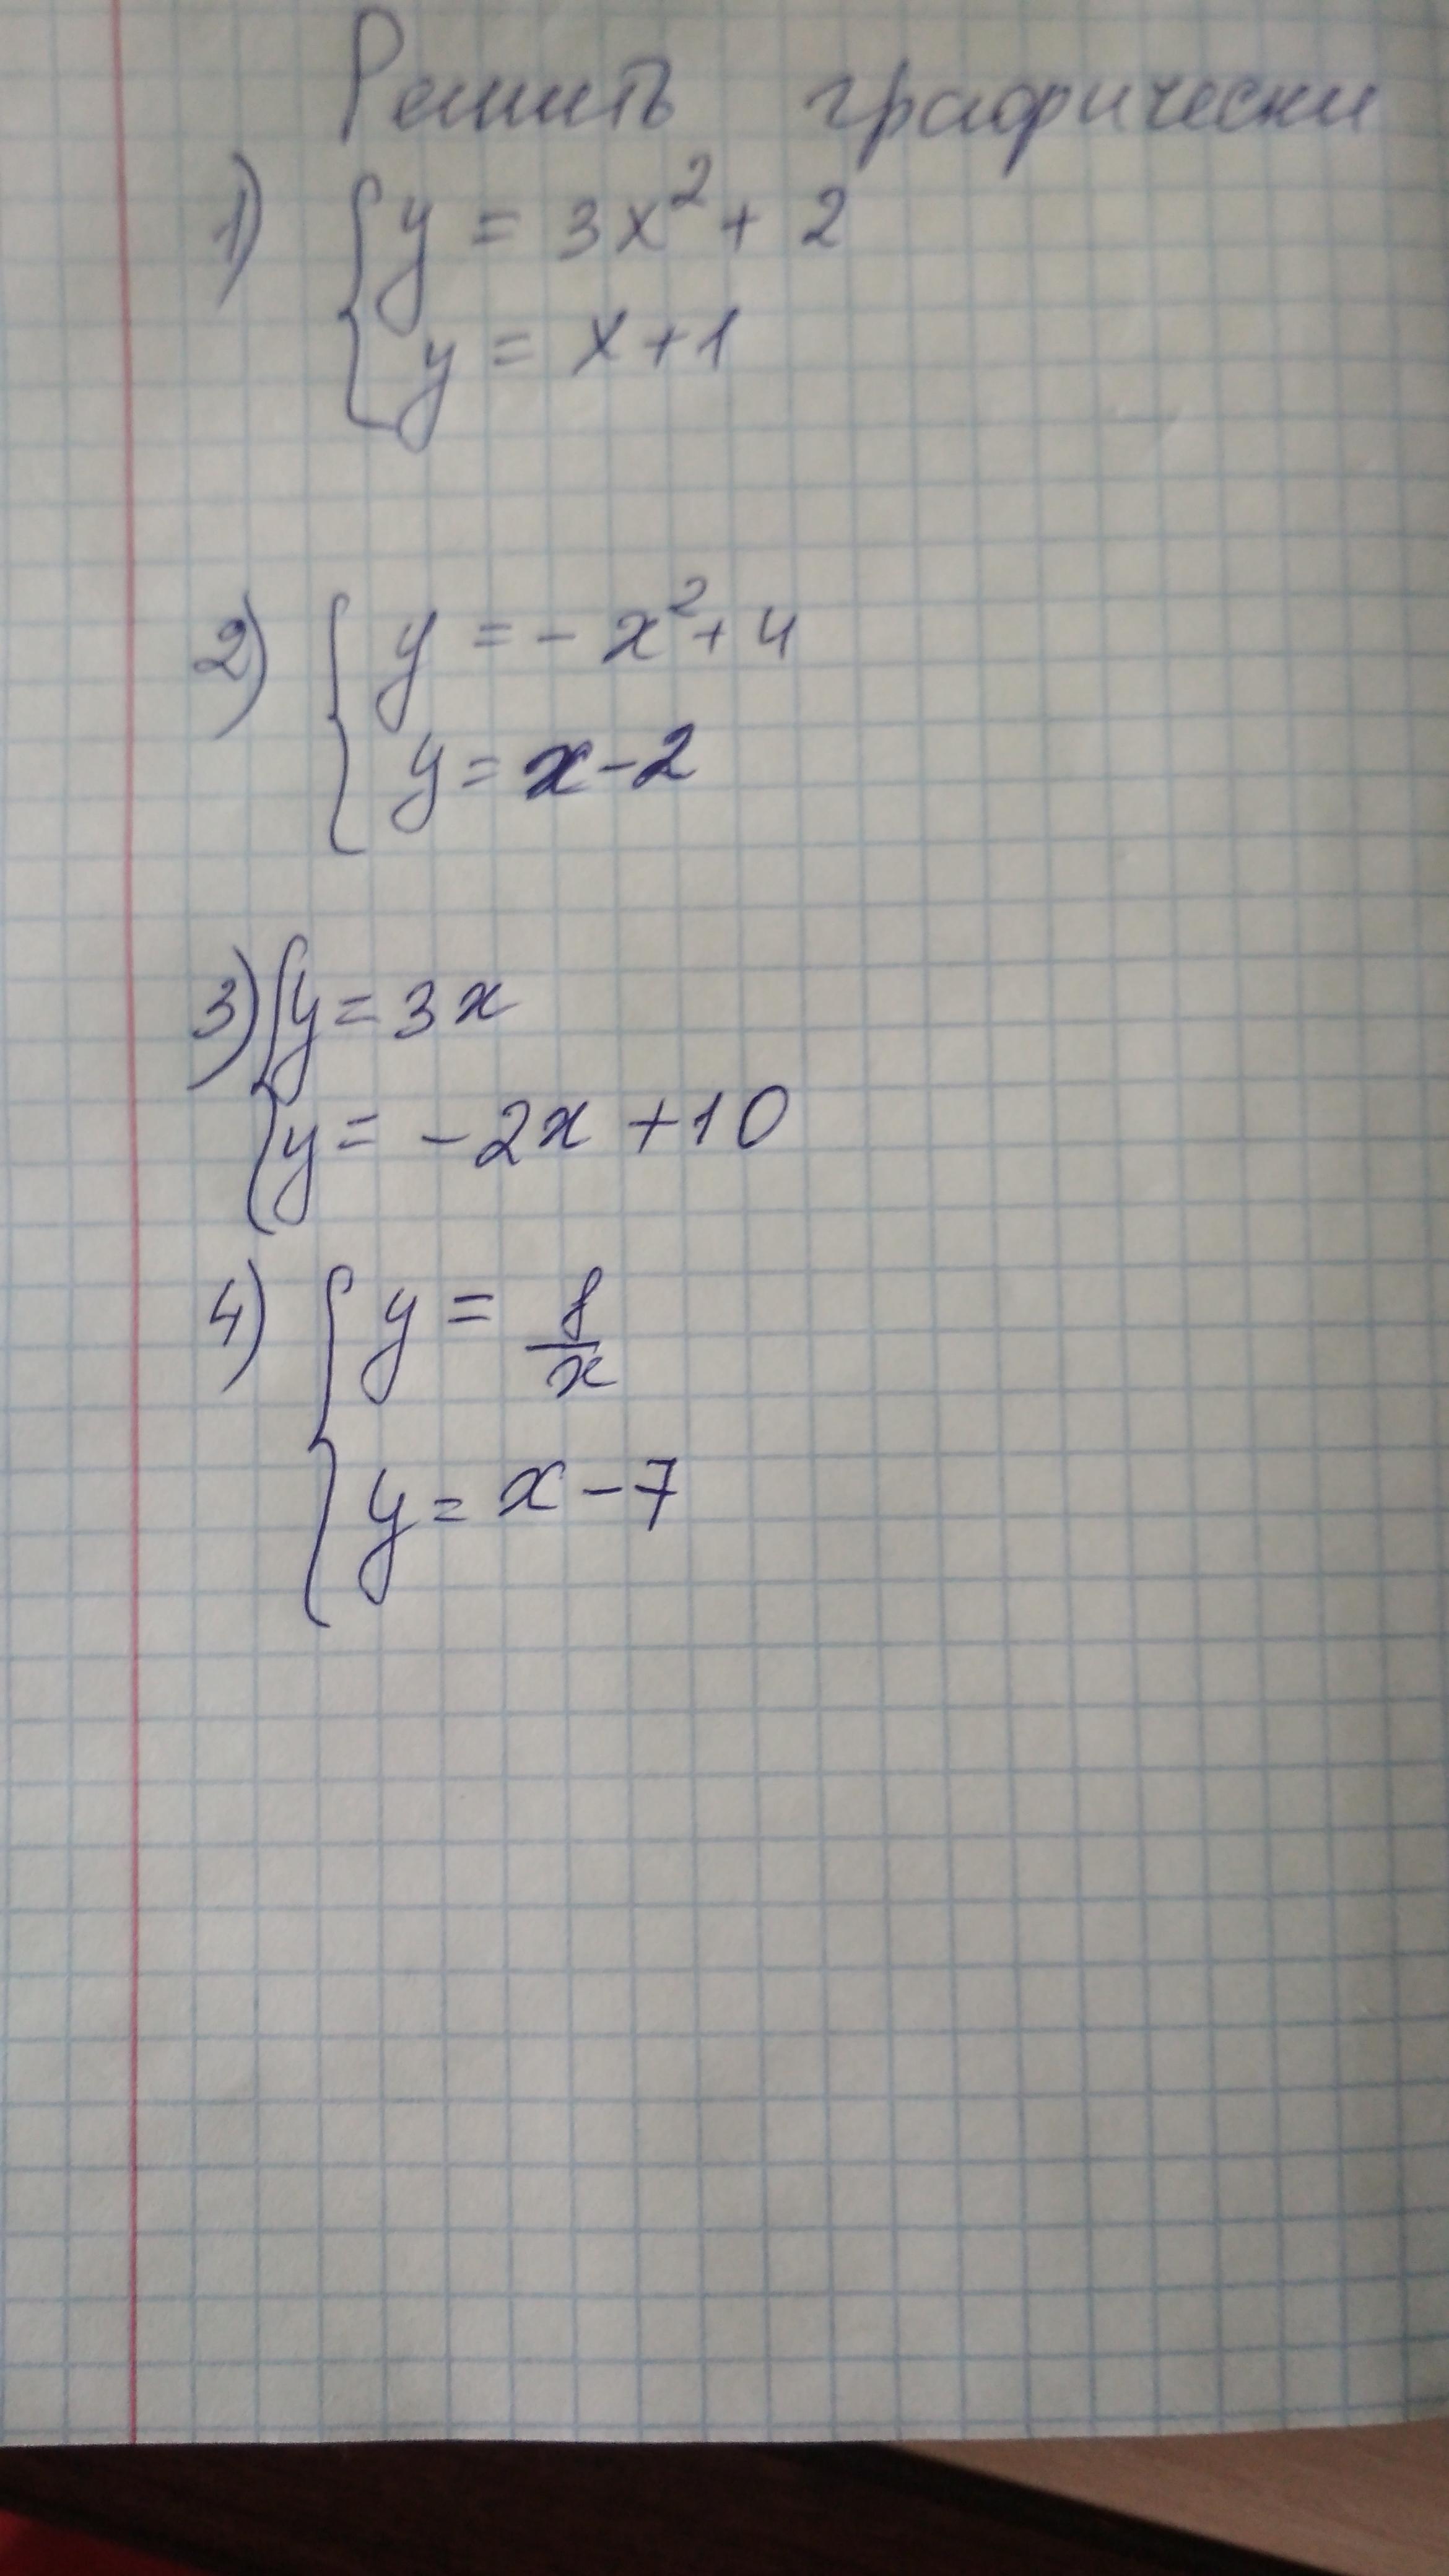 Решить графически
1) { y = 3x² + 2
y = x + 1
2) { y = - x² + 4
y = x - 2
3) { y = 3x
y = - 2x + 10
4) { y = 8/x
y = x - 7